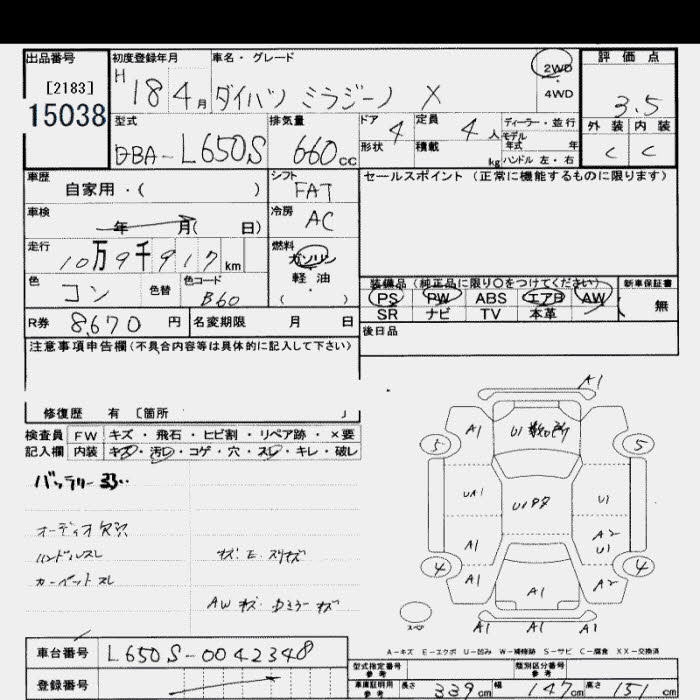 出品番号 初度登録年月 車名・グレード 評価点
[2183] H 18 4月 ダイハツ ミラジーノ X 2WD 3.5
15038 4WD
型式 排気量 ドア 4 定員 4人 ディーラー・並行 外装 内装
DBA-L650S 660cc 形状 積載 kg モデル年式 年 C C
ハンドル 左・右
車歴 シフト セールスポイント (正常に機能するものに限ります)
自家用・( ) FAT
車検 年 月( 日) 冷房 AC
走行 10万9千917km 燃料 ガソリン
軽油
( )
色 コン 色替 色コード B60
装備品 (純正品に限り○をつけてください) 新車保証書
PS PW ABS エアB AW 無
SR ナビ TV 本革
R券 8,670円 名変期限 月 日
後日品
注意事項申告欄(不具合内容等は具体的に記入して下さい)
修復歴 有 [箇所 」
A1
検査員 FW キズ・飛石・ヒビ割・リペア跡・×要
記入欄 内装 キズ・汚レ・コゲ・穴・スレ・キレ・破レ
A1 U1
5 5
バッテリー弱..
UA1 U1
オーディオ欠品
ハンドルスレ キズ・E・スリキズ
A1 A2
U1
4 4
カーペットスレ
A1 A1 A2
AWキズ・Dミラーキズ
スペア A1 A1 A1
A-キズ E-エクボ U-凹み W-補修跡 S-サビ C-腐食 XX-交換済
車台番号 L650S-0042348
型式指定番号 参考 類別区分番号 参考
登録番号
車庫証明用 参考 長さ 339cm 幅 147cm 高さ 151cm